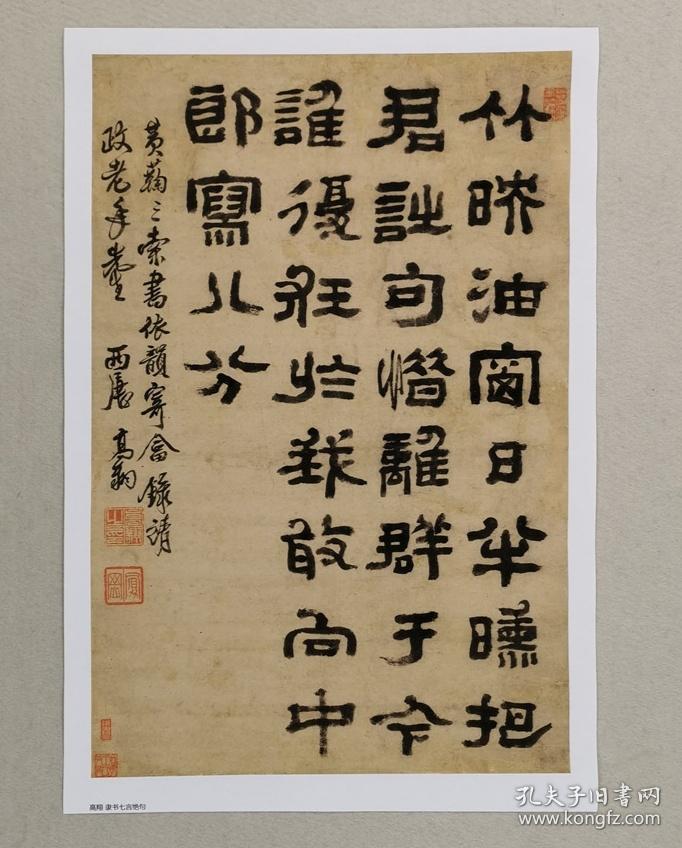 竹映油窗日半曛把
君詩句惜離群于今
誰復狂於我敢向中
郎寫八分
索書依韻寄 錄請
政老年臺 西唐高翔
高翔 隶书七言绝句
孔夫子旧书网
www.kongfz.com